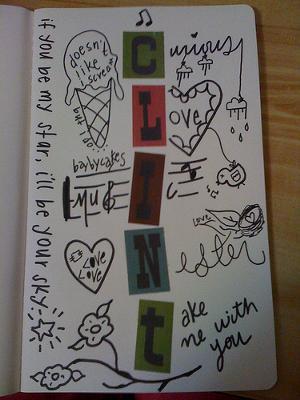 if you be my star, i'll be your sky
doesn't
like
scream
Curious
Love
babycakes
MUSIC
I
LOVE
LOVE
love
Nester
take
me with
you